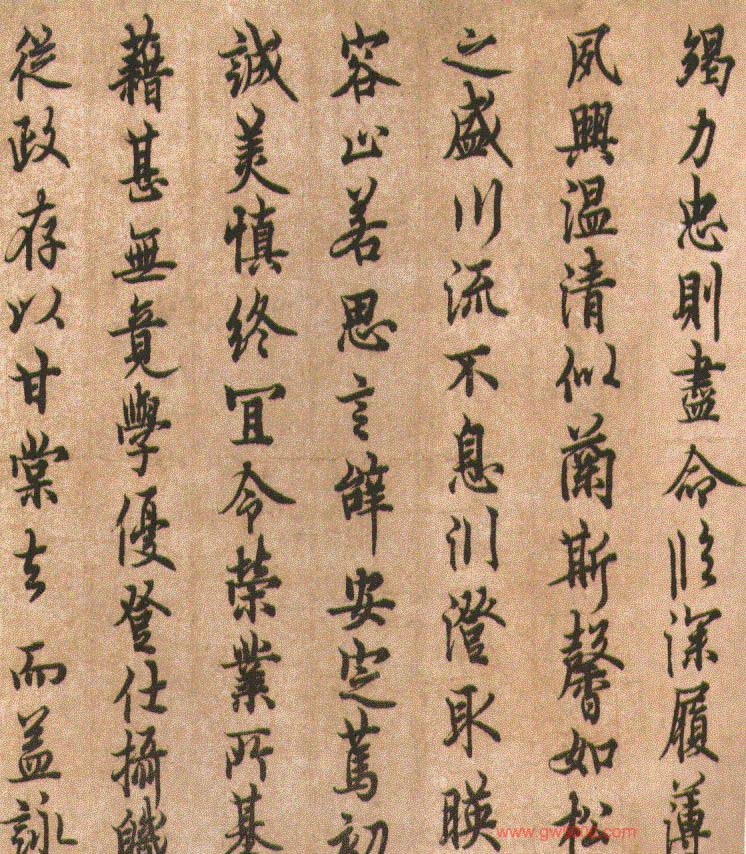 竭力忠則盡命臨深履薄
夙興溫清似蘭斯馨如松
之盛川流不息淵澄取暎
容止若思言辭安定篤初
誠美慎終宜令榮業所基
藉甚無竟學優登仕攝職
從政存以甘棠去而益詠